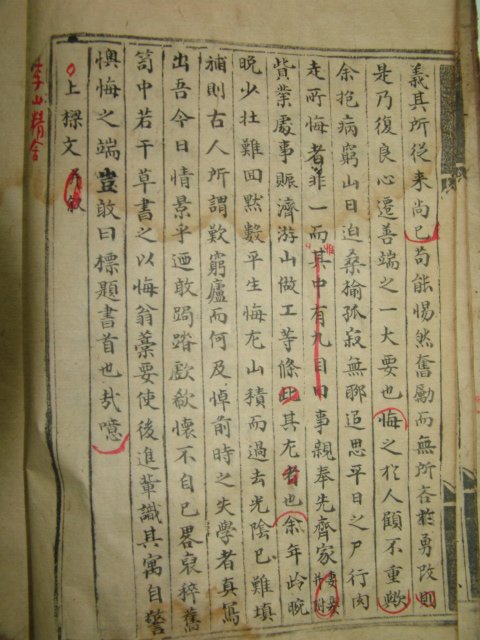 義其所從来尚已苟能惕然奮勵而無所吝於勇改則
是乃復良心遷善端之一大要也悔之於人顧不重歟
余抱病窮山日迫桑榆孤寂無聊追思平日之尸行肉
走所悔者非一而其中有九目曰事親奉先齊家
貲業處事賑濟游山做工等條此其尤者也余年齡晼
晩少壮難回黙數平生悔尤山積而過去光陰已難填
補則古人所謂歎窮廬而何及悼前時之失學者真寫
出吾今日情景乎迺敢跼踏歔欷懷不自已畧裒稡舊
笥中若干草書之以悔翁藁要使後進軰識其寓自警
懊悔之端豈敢曰標題書首也㢤噫
上樑文
李山精舍